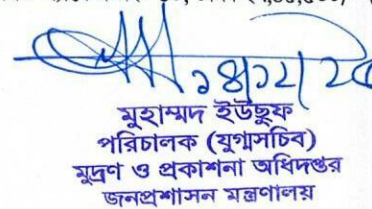 ১৪/১২/২৫
মুহাম্মদ ইউছুফ
পরিচালক (যুগ্মসচিব)
মুদ্রণ ও প্রকাশনা অধিদপ্তর
জনপ্রশাসন মন্ত্রণালয়